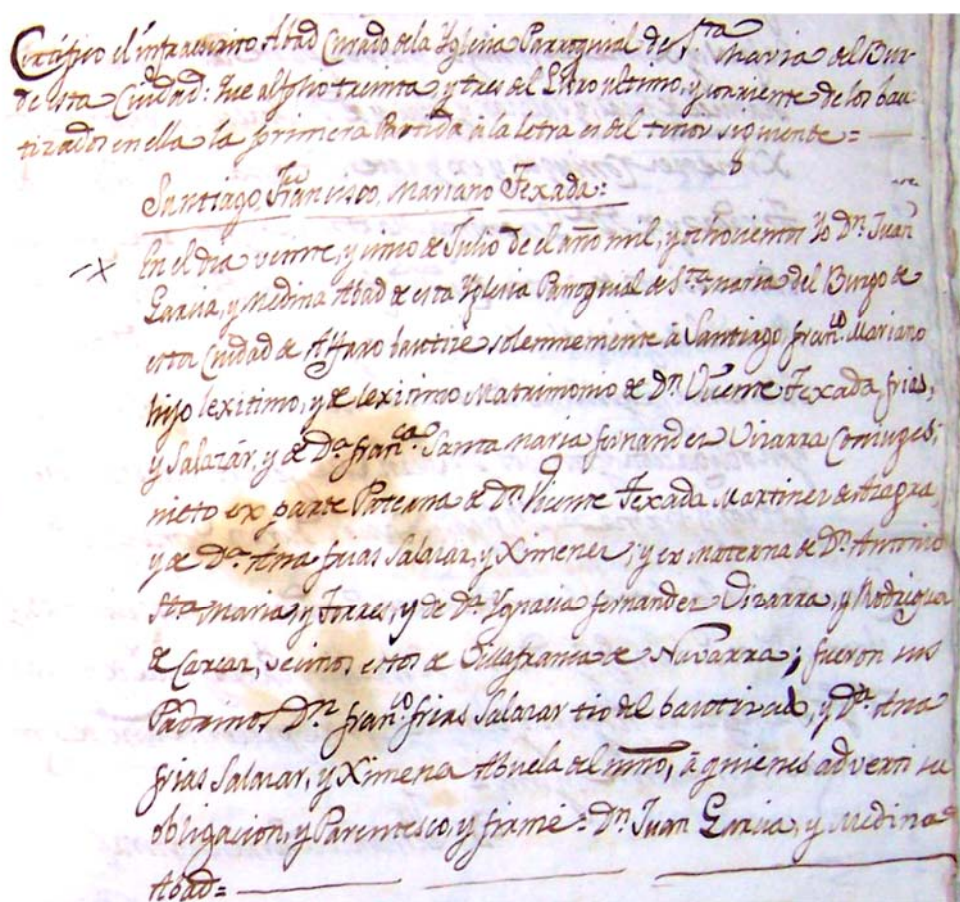 Certifico el infraescrito Abad Curado de la Yglesia Parroquial de Sta. Maria del Bur-
de esta Ciudad: Que al folio treinta y tres del Libro ultimo, y corriente de los bau-
tizados en ella la primera Partida à la letra es del tenor siguiente =
Santiago, Franco. Francisco, Mariano Texada:
En el dia veinte, y cinco de Julio de el año mil, y ochocientos Yo Dn. Juan
Garcia, y Medina Abad de esta Yglesia Parroquial de Sta. Maria del Burgo de
esta Ciudad de Alfaro bautizè solemnemente à Santiago, Franco. Mariano
hijo lexitimo, y de lexitimo Matrimonio de Dn. Vicente Texada, frias,
y Salazàr, y de Da. Franca. Santa Maria fernandez Vizarra Coniuges;
nieto ex parte Paterna de Dn. Vicente Texada Martinez de Azagra,
y de Da. Ana frias Salazar, y Ximenez; y ex Materna de Dn. Antonio
Sta. Maria, y Torres, y de Da. Ygnacia fernandez Vizarra, y Rodriguez
de Carcar, vecinos estos de Villafranca de Navarra; fueron sus
Padrinos Dn. Franco. frias Salazar tio del bautizado, y Da. Ana
frias Salazar, y Ximenez Abuela del niño, à quienes adverti su
obligacion, y Parentesco, y firmé = Dn. Juan Garcia, y Medina
Abad =